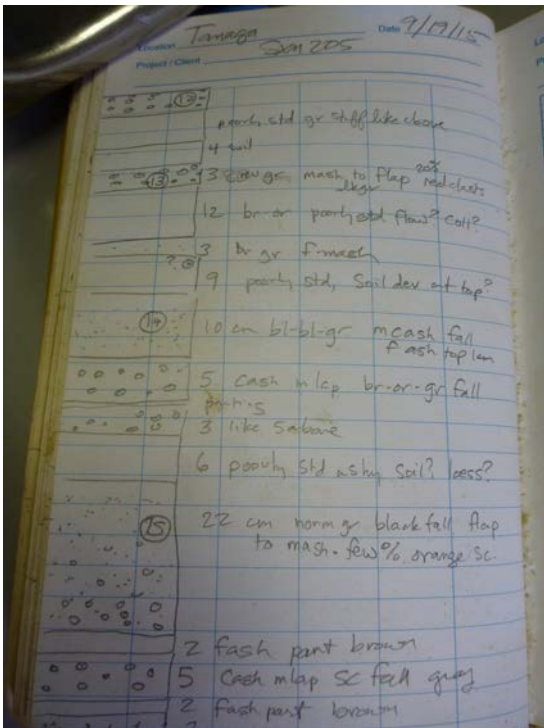 Location Tanaga Date 9/19/15
Project / Client Jan 205
12
poorly std gr stuff like above
4 soil
13 3 gr mash to flap 20% red clasts
dkgr
12 br-or poorly std flow? Coll?
3 br gr f-mash
? 9 poorly std, Soil dev at top?
14 10 cm bl-bl-gr mcash fall
f ash top 1cm
5 cash mlap br-or-gr fall
3 like 5 above
6 poorly std ashy soil? loess?
15 22 cm norm gr black fall flap
to mash. few % orange sc.
2 fash part brown
5 Cash mlap sc fall gray
2 fash part brown